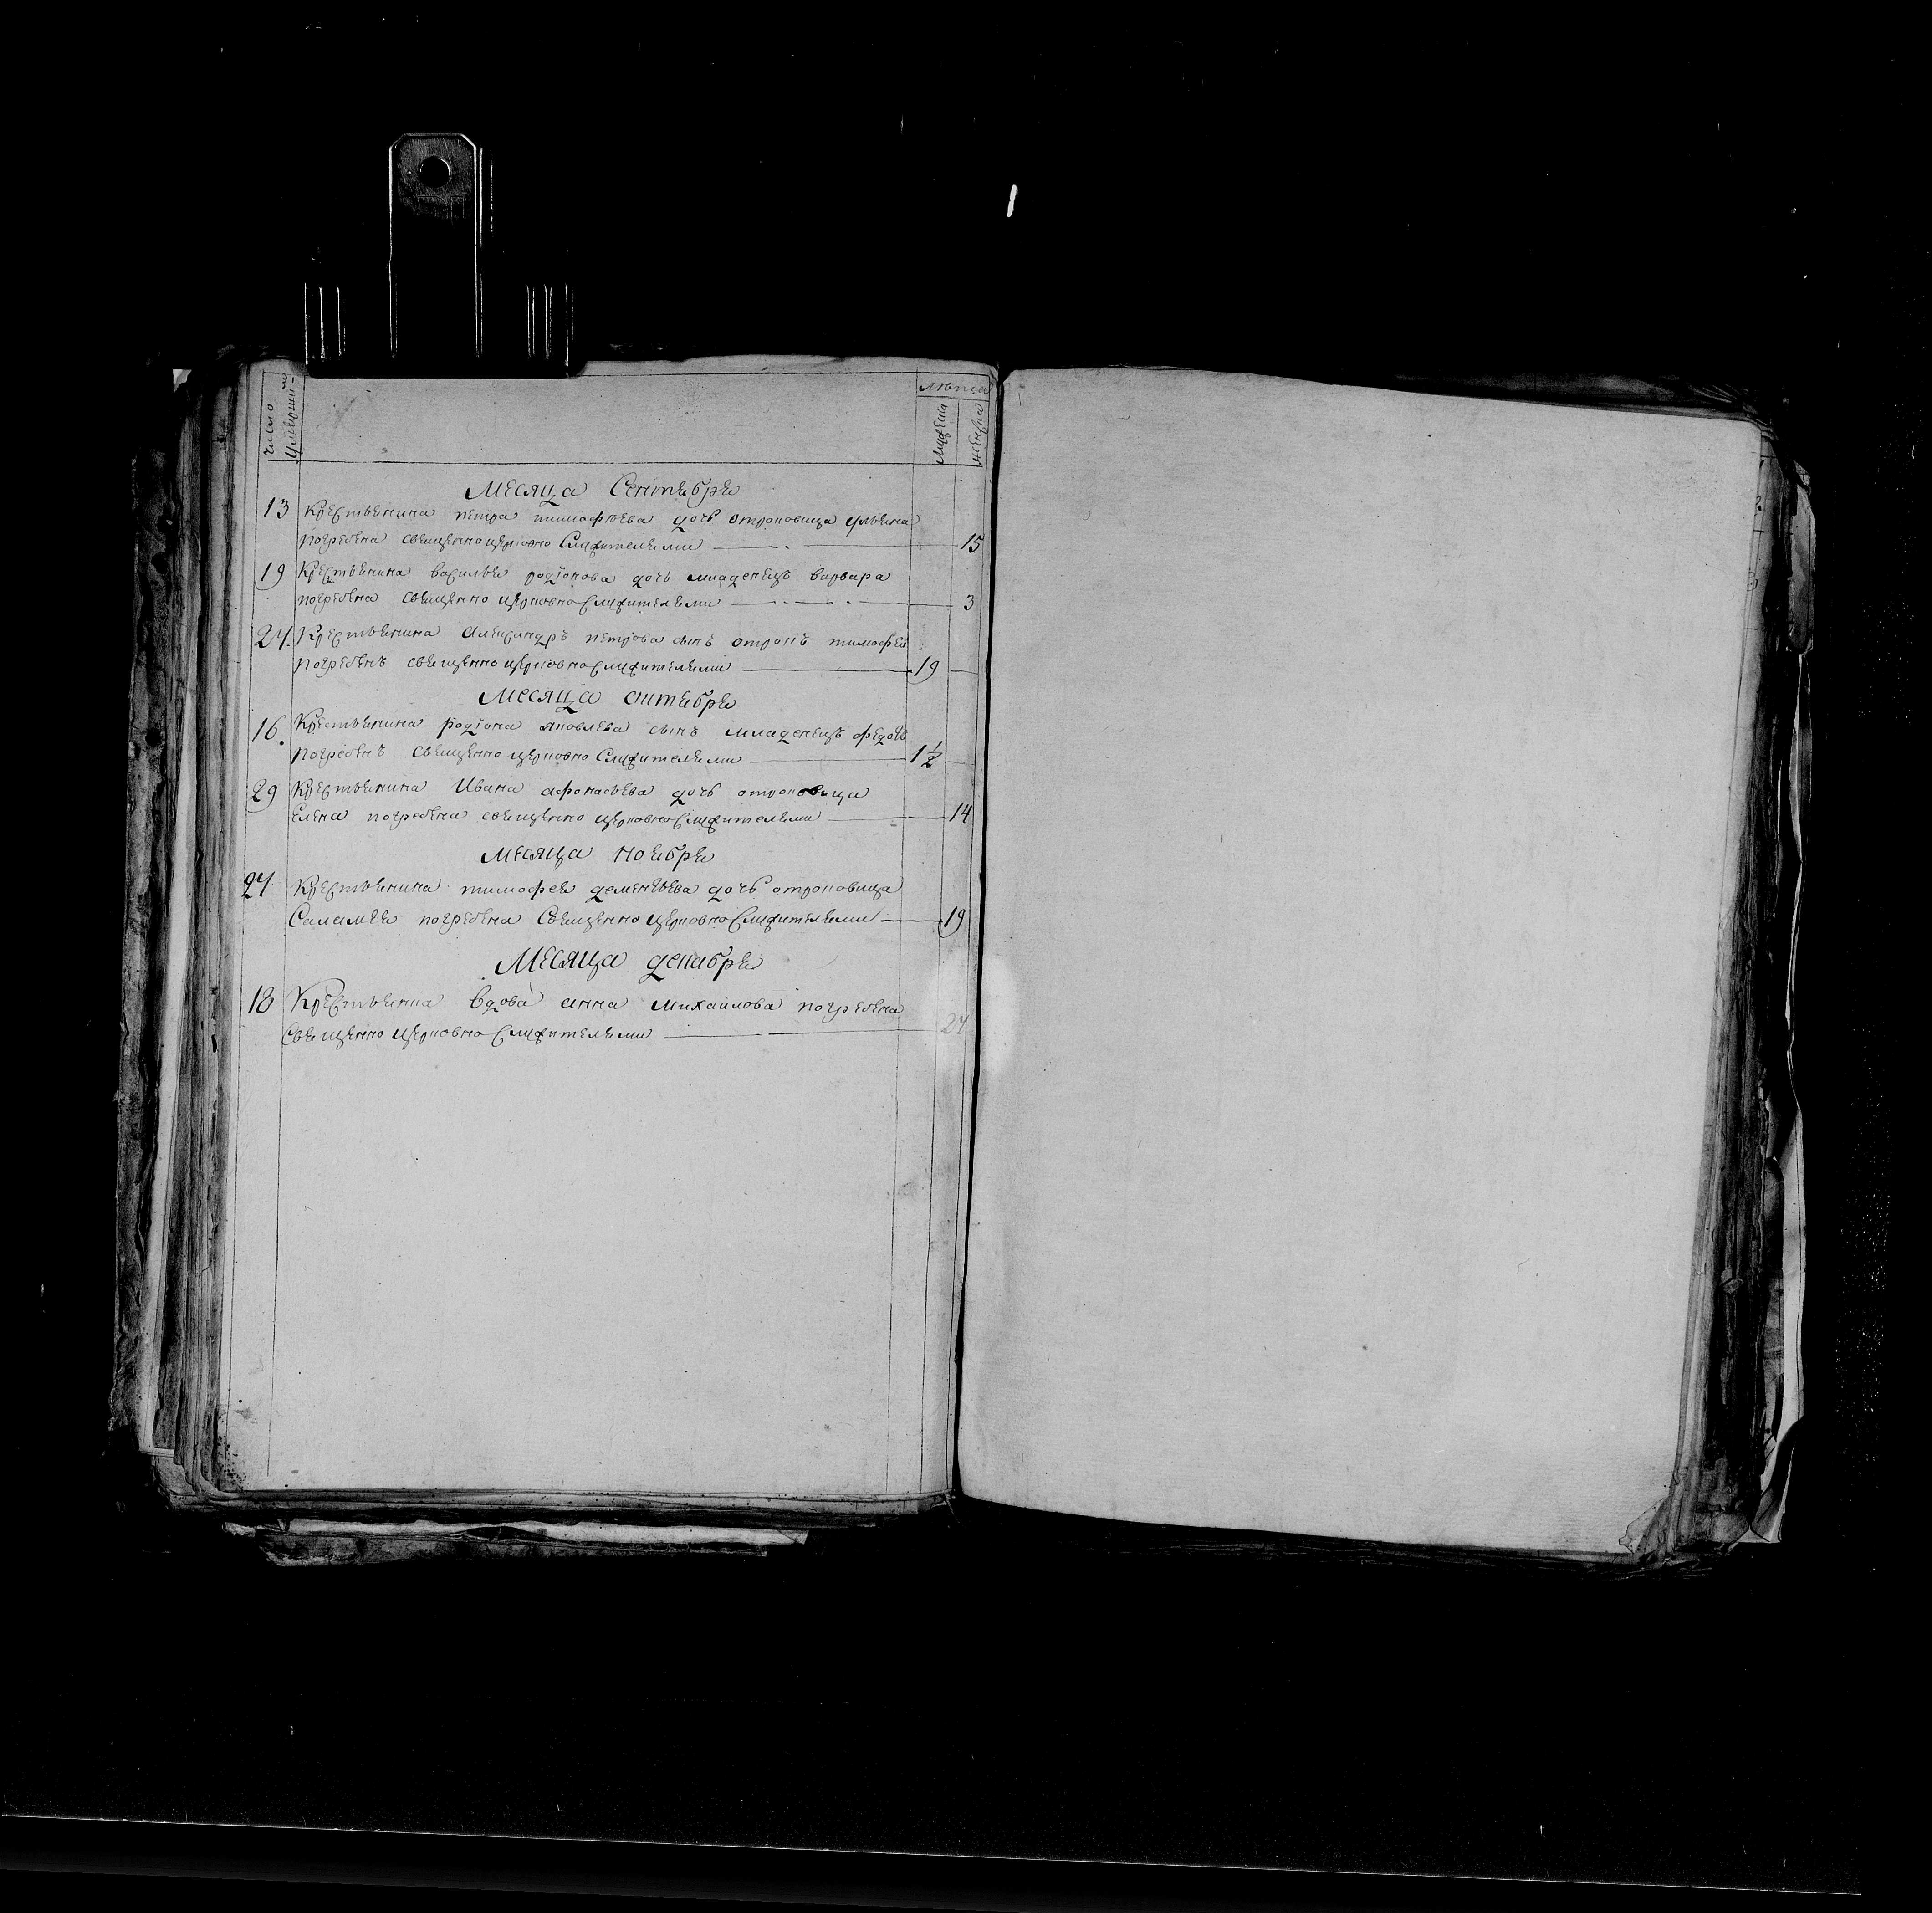 число
умерши-
лѣта
мужеска
женска
Месяца Сентября
13 крестьянина петра тимофеева дочь отроковица ульяна
погребена священно церковно служителями 15
19 крестьянина василья родiонова дочь младенецъ варвара
погребена священно церковно служителями 3
24. крестьянина александръ петрова сынъ отрокъ тимофей
погребенъ священно церковно служителями 19
Месяца октября
16. крестьянина родiона яковлева сынъ младенецъ федоръ
погребенъ священно церковно служителями 1 1/2
29 крестьянина Ивана афонасьева дочь отроковица
елена погребена священно церковно служителями 14
Месяца ноября
27 крестьянина тимофея дементьева дочь отроковица
Саламея погребена священно церковно служителями 19
Месяца декабря
18 крестьянина вдова анна михайлова погребена
священно церковно служителями 27